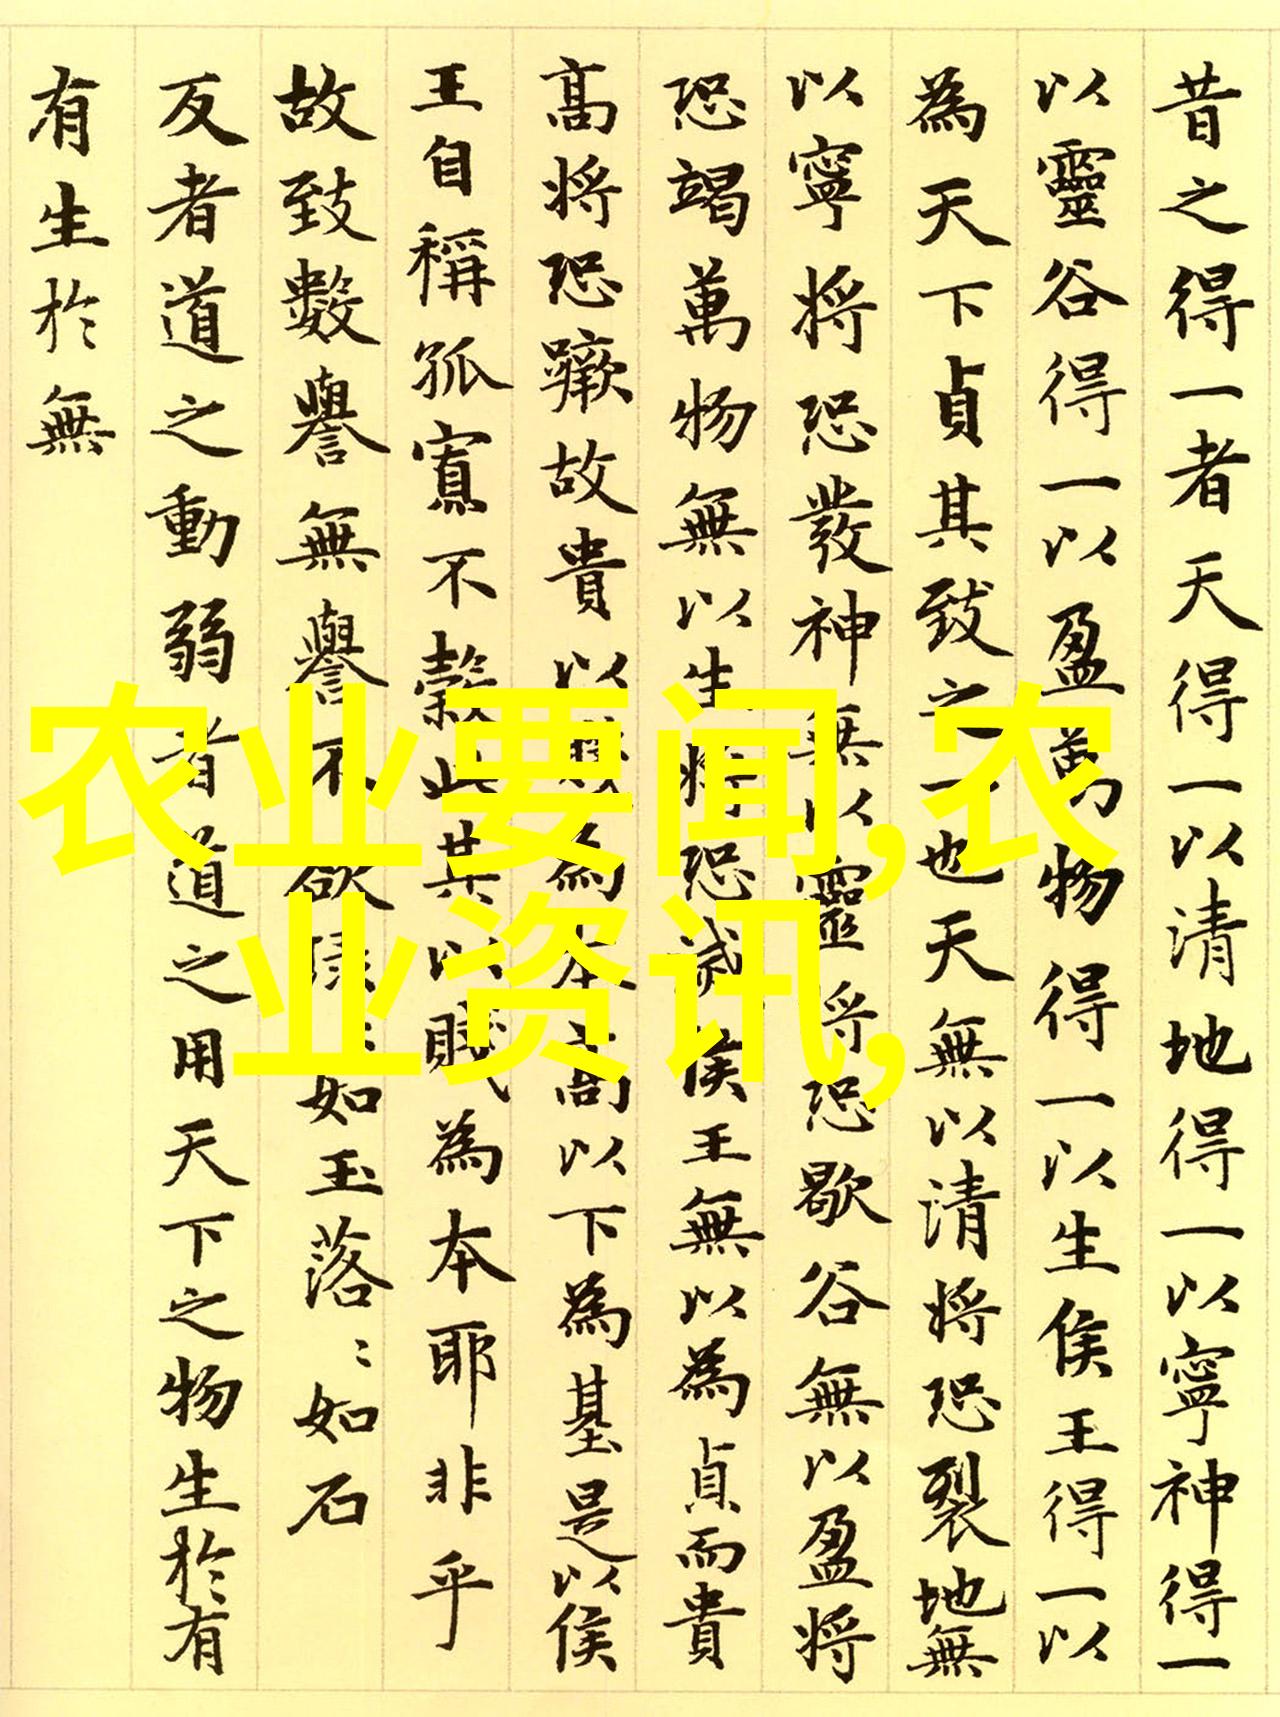 昔之得一者天得一以清地得一以寧神得一
以靈谷得一以盈萬物得一以生侯王得一以
為天下貞其致之一也天無以清將恐裂地無
以寧將恐發神無以靈將恐歇谷無以盈將
恐竭萬物無以生將恐滅侯王無以為貞而貴
高將恐蹶故貴以賤為本高以下為基是以侯
王自稱孤寡不穀此其以賤為本耶非乎
故致數譽無譽不欲琭〻如玉落〻如石
反者道之動弱者道之用天下之物生於有
有生於無
农业要闻,农
业资讯,